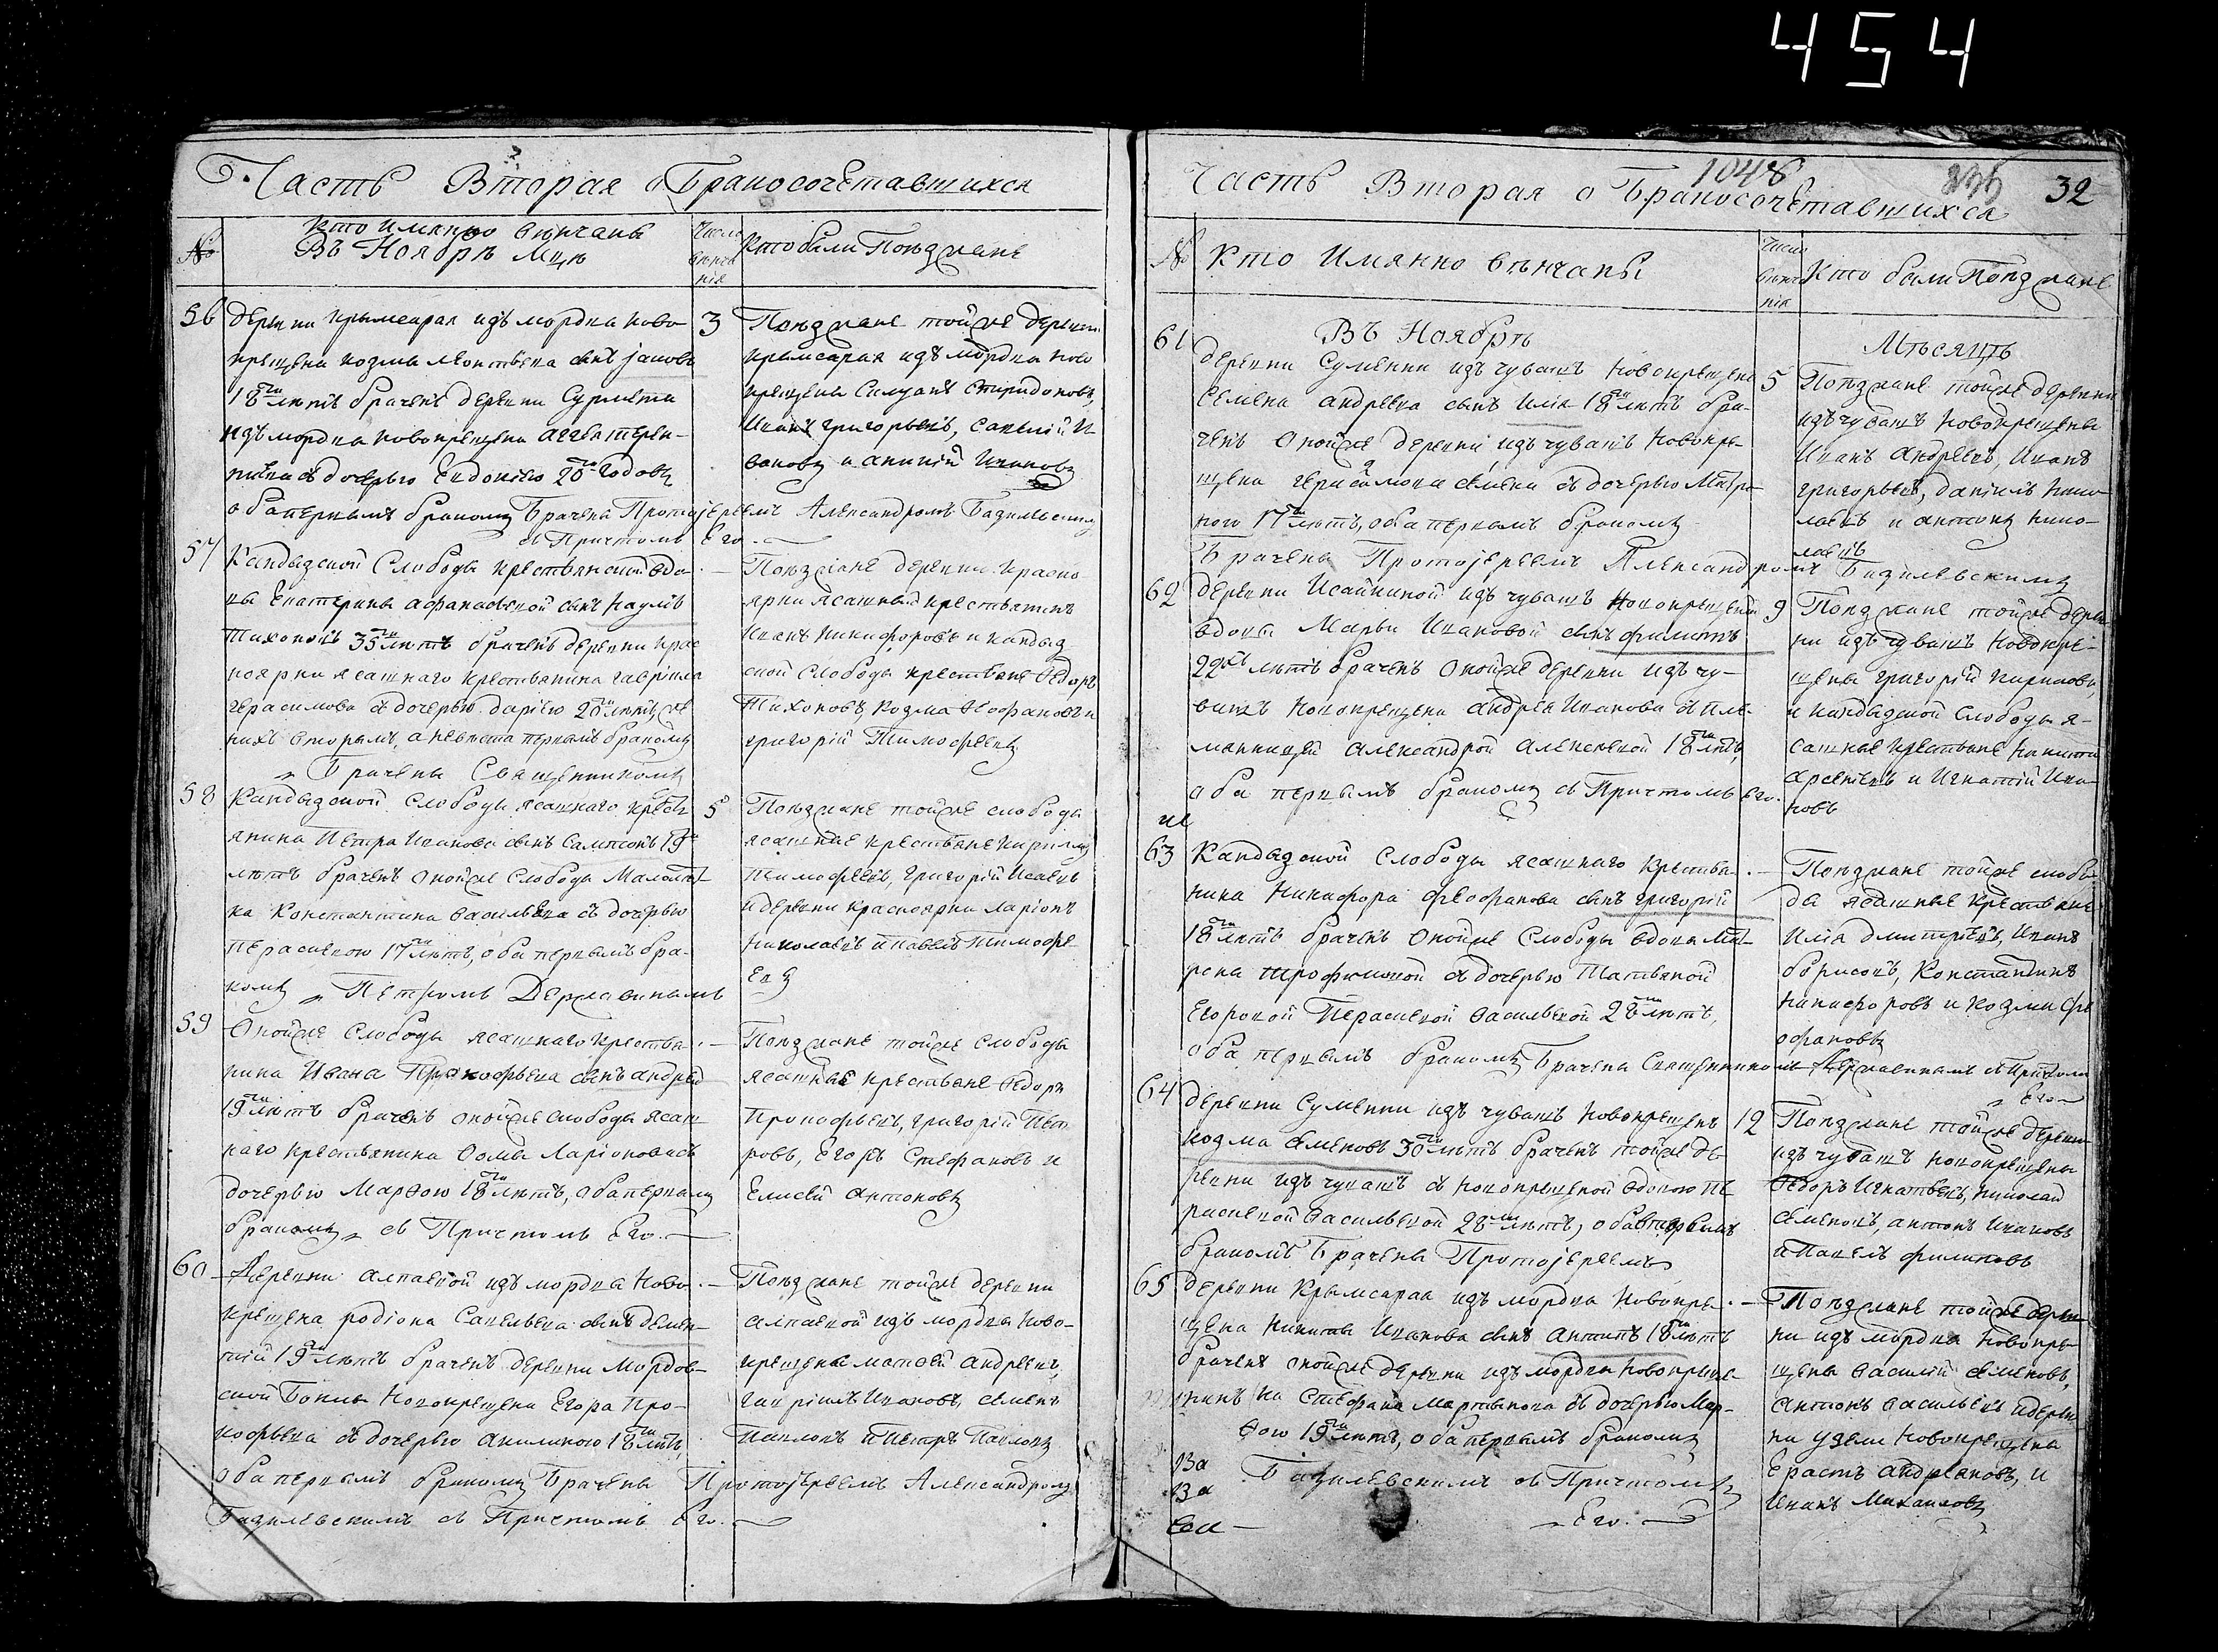 454
Часть Вторая о Бракосочетавшихся
№
Кто имянно венчаны
Въ Ноябрѣ Мцѣ
Число
венча
нія
Кто были Поѣзжане
56
деревни крымсарая изъ мордвы ново
крещена козмы леонтьева сынъ јаковъ
18 лѣтъ браченъ деревни Сурметы
изъ мордвы новокрещена
съ дочерью Евдокіею 20 годовъ
оба первымъ бракомъ Брачены Протоjереемъ Александромъ Базилевскимъ
съ Причтомъ Его
3
Поѣзжане тойже деревни
крымсарая изъ мордвы ново
крещены Силуанъ Спиридоновъ,
Иванъ григорьевъ, савелій И
вановъ и ананій Ивановъ
57
Кандызской Слободы крестьянской вдо
вы Екатерины афанасьевой сынъ наумъ
Тихоновъ 35 лѣтъ браченъ деревни крас
ноярки ясашнаго крестьянина гаврила
герасимова съ дочерью дарьею 20 лѣтъ, же
нихъ вторымъ, а невѣста первымъ бракомъ
Брачены Священникомъ
Поѣзжане деревни красно
ярки ясашный крестьянинъ
Иванъ никифоровъ и кандыз
ской слободы крестьяне Ѳедоръ
Тихоновъ, козма Феофановъ и
григорій Тимофеевъ
58
Кандызской слободы ясашнаго крестья
янина Петра Иванова сынъ Сампсонъ 19
лѣтъ браченъ оной же слободы
ка Константина Васильева съ дочерью
Перасьевою 17 лѣтъ, оба первымъ бра-
комъ Петромъ Державинымъ
5
Поѣзжане тойже слободы
ясашные крестьяне
Тимофеевъ, григорій Исаевъ
и деревни красноярки ларіонъ
николаевъ и павелъ Тимофе
евъ
59
Оной же Слободы ясашнаго крестья
нина Ивана Прокофьева сынъ андрей
19 лѣтъ браченъ оной же слободы ясаш
наго крестьянина Ѳомы Ларіонова съ
дочерью Марѳою 18 лѣтъ, оба первымъ
бракомъ съ Причтомъ Его.
Поѣзжане тойже слободы
ясашные крестьяне Ѳедоръ
Прокофьевъ, григорій Пет
ровъ, Егоръ Стефановъ и
Елисей антоновъ
60
Деревни алпаевой изъ мордвы Ново
крещена родіона Савельева сынъ демен-
тій 19 лѣтъ браченъ деревни Мордов-
ской Новокрещена Егора Про-
кофьева съ дочерью акилиною 18 лѣтъ,
оба первымъ бракомъ Брачены Протоjереемъ Александромъ
Базилевскимъ съ Причтомъ Его.
Поѣзжане тойже деревни
алпаевой изъ мордвы Ново-
крещены матвей андреевъ,
гавріилъ Ивановъ, семенъ
Павловъ и Петръ Павловъ
Часть Вторая о Бракосочетавшихся
1048
32
№
Кто Имянно венчаны
Число
венча
нія
Кто были Поѣзжане
61
Въ Ноябрѣ
Мѣсяцѣ
деревни Суменки изъ чувашъ Новокрещена
Семена андреева сынъ Илія 18 лѣтъ бра-
ченъ оной же деревни изъ чувашъ Новокре-
щена семена съ дочерью Матре
ною 17 лѣтъ, оба первымъ бракомъ
Брачены Протоjереемъ Александромъ Базилевскимъ
5
Поѣзжане тойже деревни
изъ чувашъ Новокрещены
Иванъ андреевъ, Иванъ
григорьевъ, даніилъ нико
лаевъ и антонъ нико-
лаевъ
62
деревни Исайкиной изъ чувашъ Новокрещеной
вдовы Марьи Ивановой сынъ филиппъ
22 лѣтъ браченъ оной же деревни изъ чу-
вашъ Новокрещена андрея Иванова съ пле-
мянницей александрой алексеевой 18 лѣтъ,
оба первымъ бракомъ съ Причтомъ Его.
9
Поѣзжане тойже дерев
ни изъ чувашъ Новокре-
щены григорій кириловъ
и кандызской слободы я-
сашные крестьяне никита
арсеньевъ и Игнатій Ива-
новъ
63
Кандызской Слободы ясашнаго крестья
нина Никифора феофанова сынъ григорій
18 лѣтъ браченъ оной же Слободы вдовы Мат-
рены трофимовой съ дочерью Татьяной
Егоровой Перасьевой васильевой 28 лѣтъ,
оба первымъ бракомъ Брачены Священникомъ Державинымъ съ Причтомъ
Его
Поѣзжане тойже слобо
ды ясашные крестьяне
Илія дмитріевъ, Иванъ
борисовъ, Константинъ
никифоровъ и козма Фе
офановъ
64
деревни Суменки изъ чувашъ Новокрещенъ
козма семеновъ 30 лѣтъ браченъ тойже де
ревни изъ чувашъ съ новокрещеной вдовою Пе
расьевой васильевой 28 лѣтъ, оба вторымъ
бракомъ Брачены Протоjереемъ
12
Поѣзжане тойже деревни
изъ чувашъ новокрещены
Ѳедоръ Игнатьевъ, николай
семеновъ, антонъ Ивановъ
и Павелъ филиповъ
65
деревни Крымсарая изъ мордвы Новокре-
щена Никиты Иванова сынъ антипъ 18 лѣтъ
браченъ оной же деревни изъ мордвы новокреще-
на Стефана мартынова съ дочерью Мар-
ѳою 19 лѣтъ, оба первымъ бракомъ
Базилевскимъ съ Причтомъ
Его.
Поѣзжане тойже дерев
ни изъ мордвы новокре
щены василій семеновъ,
антонъ васильевъ и дерев
ни узели новокрещены
Ерастъ андреяновъ, и
Иванъ Михаиловъ